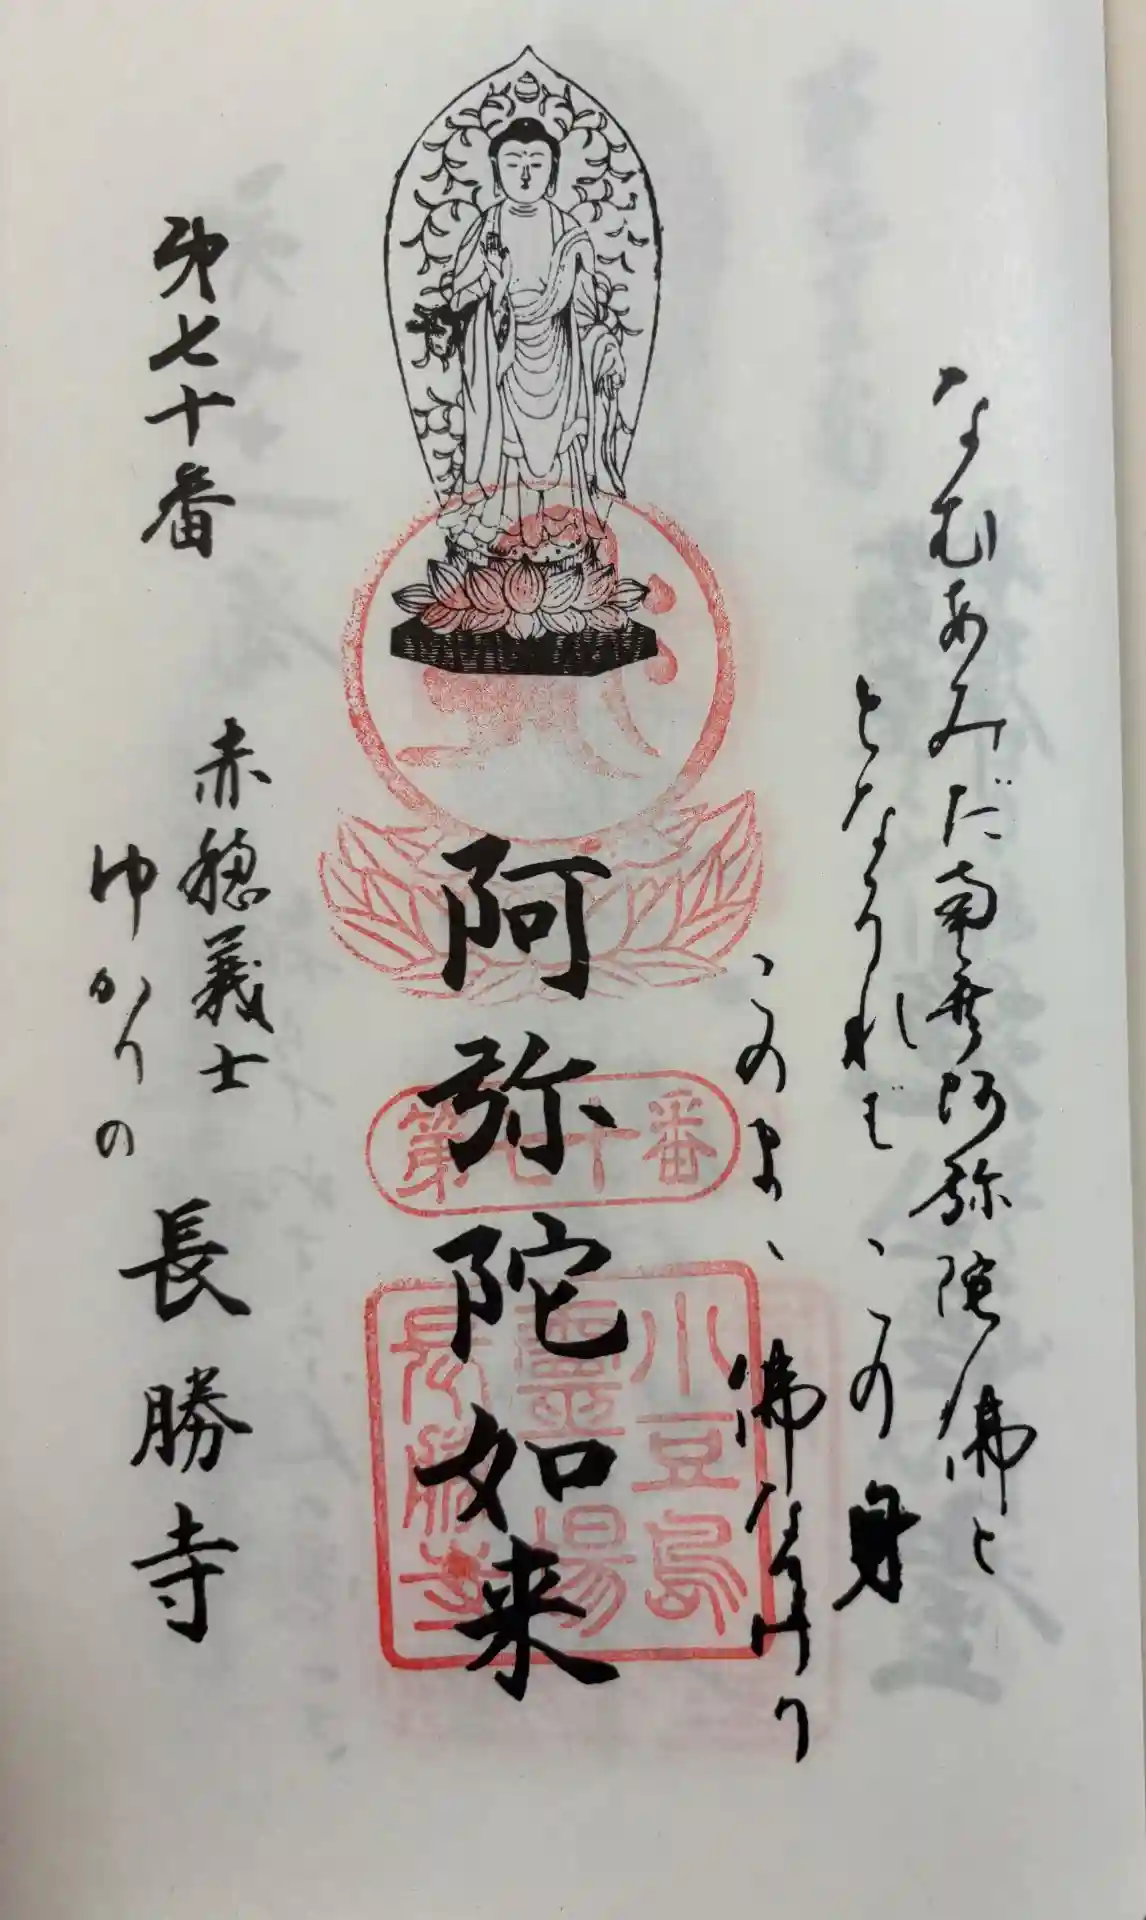 なむあみだ南無阿弥陀佛と
となふれば、この身
このまゝ佛なりけり
阿弥陀如来
第七十番
小豆島
靈場
長勝寺
第七十番
赤穏義士
ゆかりの
長勝寺